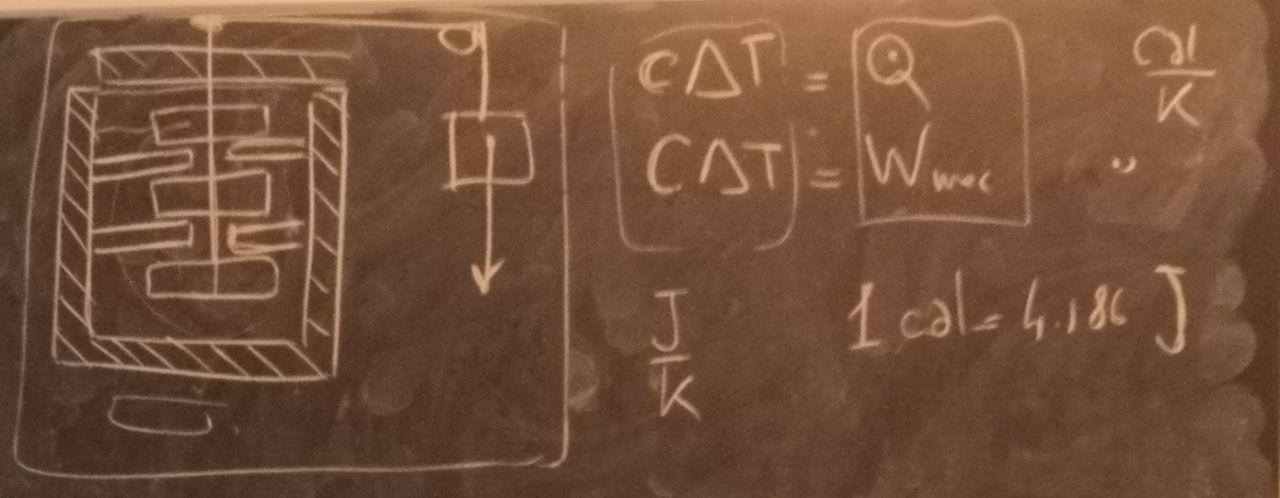 CΔT = Q
cal/K
CΔT = W mec
"
J/K
1 cal = 4.186 J